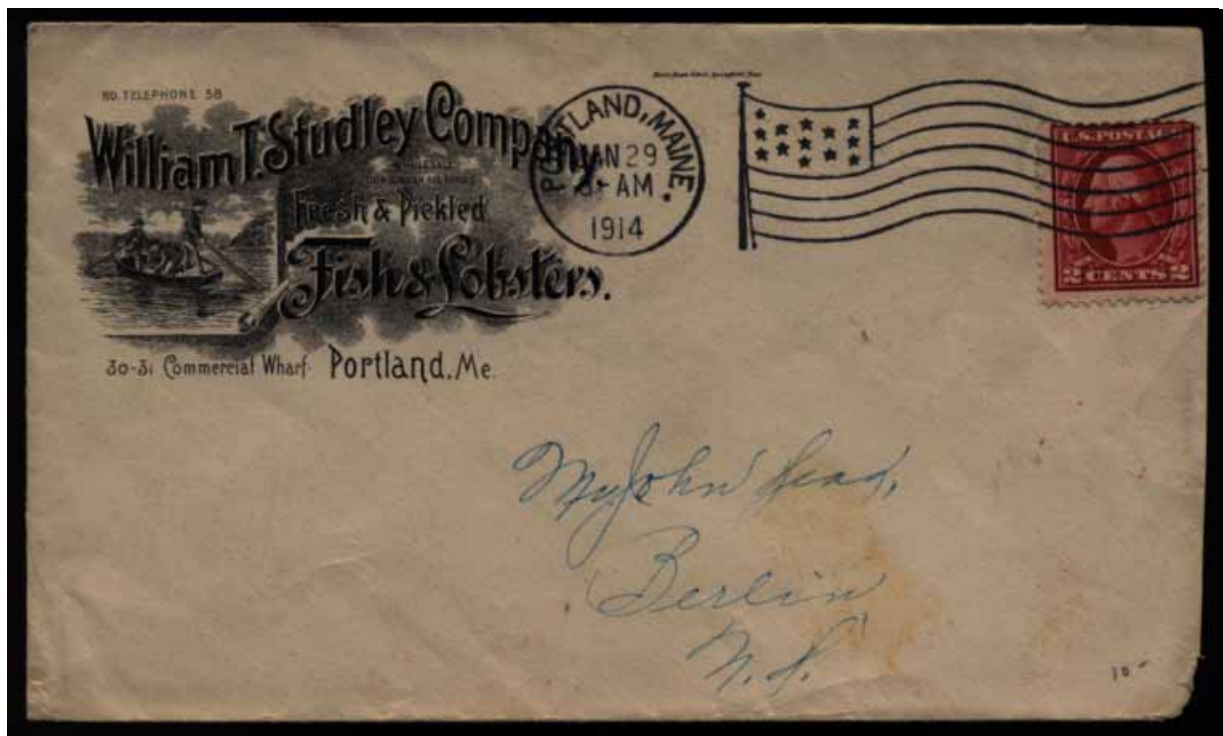 NO. TELEPHONE 58
William T. Studley Company,
WHOLESALE
Fresh & Pickled
Fish & Lobsters.
30-31 Commercial Wharf. Portland, Me.
PORTLAND, MAINE.
JAN 29
AM
1914
U.S. POSTAGE
2 CENTS 2
John Head,
Berlin
N.H.
10-